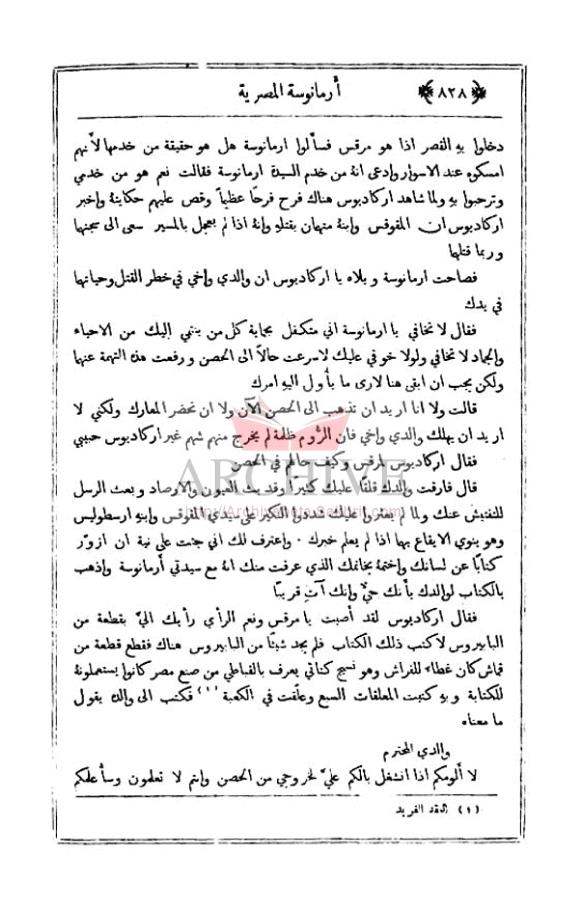 ﴿٨٢٨﴾ أرمانوسة المصرية
دخلوا بهِ القصر اذا هو مرقس فسألوا ارمانوسة هل هو حقيقة من خدمها لأنهم
امسكوه عند الاسوار وادعى انهُ من خدم السيدة ارمانوسة فقالت نعم هو من خدمي
وترحبوا بهِ ولما شاهد اركاديوس هناك فرح فرحًا عظيمًا وقص عليهم حكايتهُ واخبر
اركاديوس ان المقوقس وابنهُ متهمان بقتلهِ وانهُ اذا لم يعجل بالمسير سعى الى سجنها
وربما قتلها
فصاحت ارمانوسة و يلاه يا اركاديوس ان والدي واخي في خطر القتل وحياتها
في يدك
فقال لا تخافي يا ارمانوسة اني متكفل بحماية كل من ينتمي إليك من الاحياء
والجماد لا تخافي ولولا خوفي عليك لاسرعت حالاً الى الحصن و رفعت هذه التهمة عنها
ولكن يجب ان ابقى هنا لارى ما يأول اليهِ امرك
قالت ولا انا اريد ان تذهب الى الحصن الآن ولا ان تحضر المعارك ولكني لا
اريد ان يهلك والدي واخي فان الرُّوم ظلمة لم يخرج منهم شهم غير اركاديوس حبيبي
فقال اركاديوس لمرقس وكيف حالهم في الحصن
قال فارقت والدك قلقًا عليك كثيرًا وقد بث العيون والارصاد و بعث الرسل
للتفتيش عنك ولما لم يعثروا عليك شددوا النكير على سيدي المقوقس وابنهِ ارسطوليس
وهو ينوي الايقاع بها اذا لم يعلم خبرك . واعترف لك اني جئت على نية ان ازوّر
كتابًا عن لسانك واختمهُ بخاتمك الذي عرفت منك انهُ مع سيدتي أرمانوسة واذهب
بالكتاب لوالدك بأنك حيٌّ وانك آتٍ قريبًا
فقال اركاديوس لقد أصبت يا مرقس ونعم الرأي رأيك اليَّ بقطعة من
البابيروس لاكتب ذلك الكتاب فلم يجد شيئًا من البابيروس هناك فقطع قطعة من
قماش كان غطاء للفراش وهو نسيج كتاني يعرف بالقباطي من صنع مصر كانوا يستعملونهُ
للكتابة و بهِ كتبت المعلقات السبع وعلّقت في الكعبة (١) فكتب الى والده يقول
ما معناه
والدي المحترم
لا ألومكم اذا انشغل بالكم عليَّ لخروجي من الحصن وانتم لا تعلمون وسأعلمكم
(١) العقد الفريد
ARCHIVE